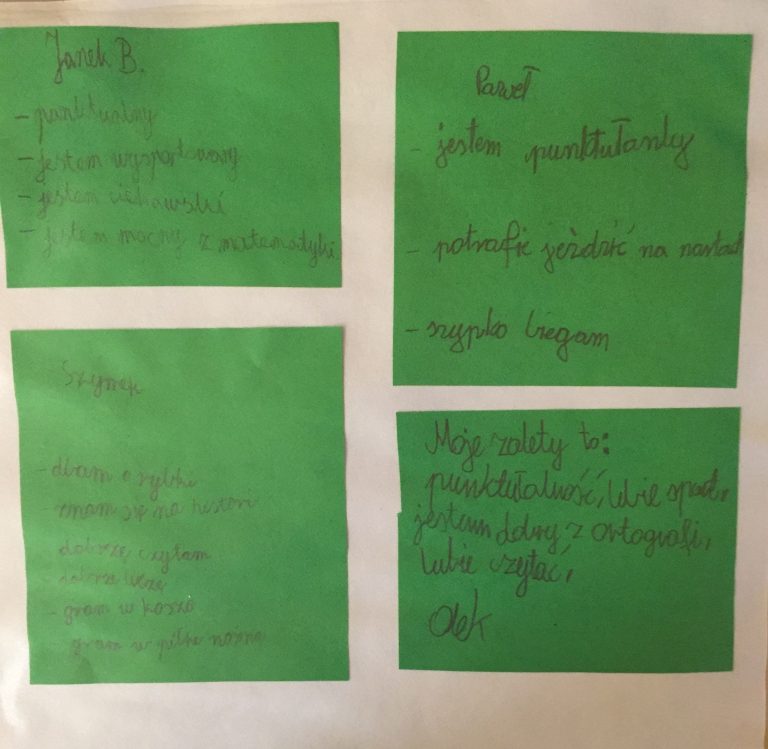 Janek B.
- punktualny
- jestem wysportowany
- jestem ciekawski
- jestem mocny z matematyki
Paweł
- jestem punktułanly
- potrafie jeździć na nartach
- szypko biegam
Szymek
- dbam o rybki
- znam się na histori
dobrze czytam
dobrze liczę
- gram w kosza
gram w piłke nożną
Moje zalety to:
punktułalność, lubie sport,
jestem dobry z ortografi,
lubie czytać,
Olek